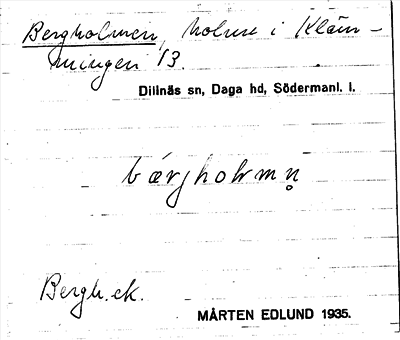 Bergholmen, holme i Kläm-
mingen 13.
Dillnäs sn, Daga hd, Södermanl. l.
bærjholmn̥
Bergh. ek.
MÅRTEN EDLUND 1935.